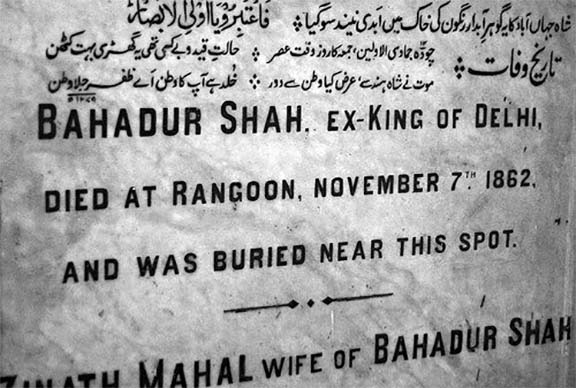 فاعتبرو یا اولی لابصار
شاہ جہاں آباد کا یہ گوہر آبدار رنگون کی خاک میں ابدی نیند سو گیا
تاریخ وفات
چودہ جمادی الاولیٰ بین، جمعہ کا روز وقت عصر حالتِ قید و بے کسی تھی یہ گھڑی بہت کٹھن
موت نے شاہِ ہند سے، عرض کیا وطن سے دور خُلد ہے آپ کا وطن اے ظفرِ جلا وطن
BAHADUR SHAH, EX-KING OF DELHI,
DIED AT RANGOON, NOVEMBER 7TH. 1862,
AND WAS BURIED NEAR THIS SPOT.
ZINATH MAHAL WIFE OF BAHADUR SHAH